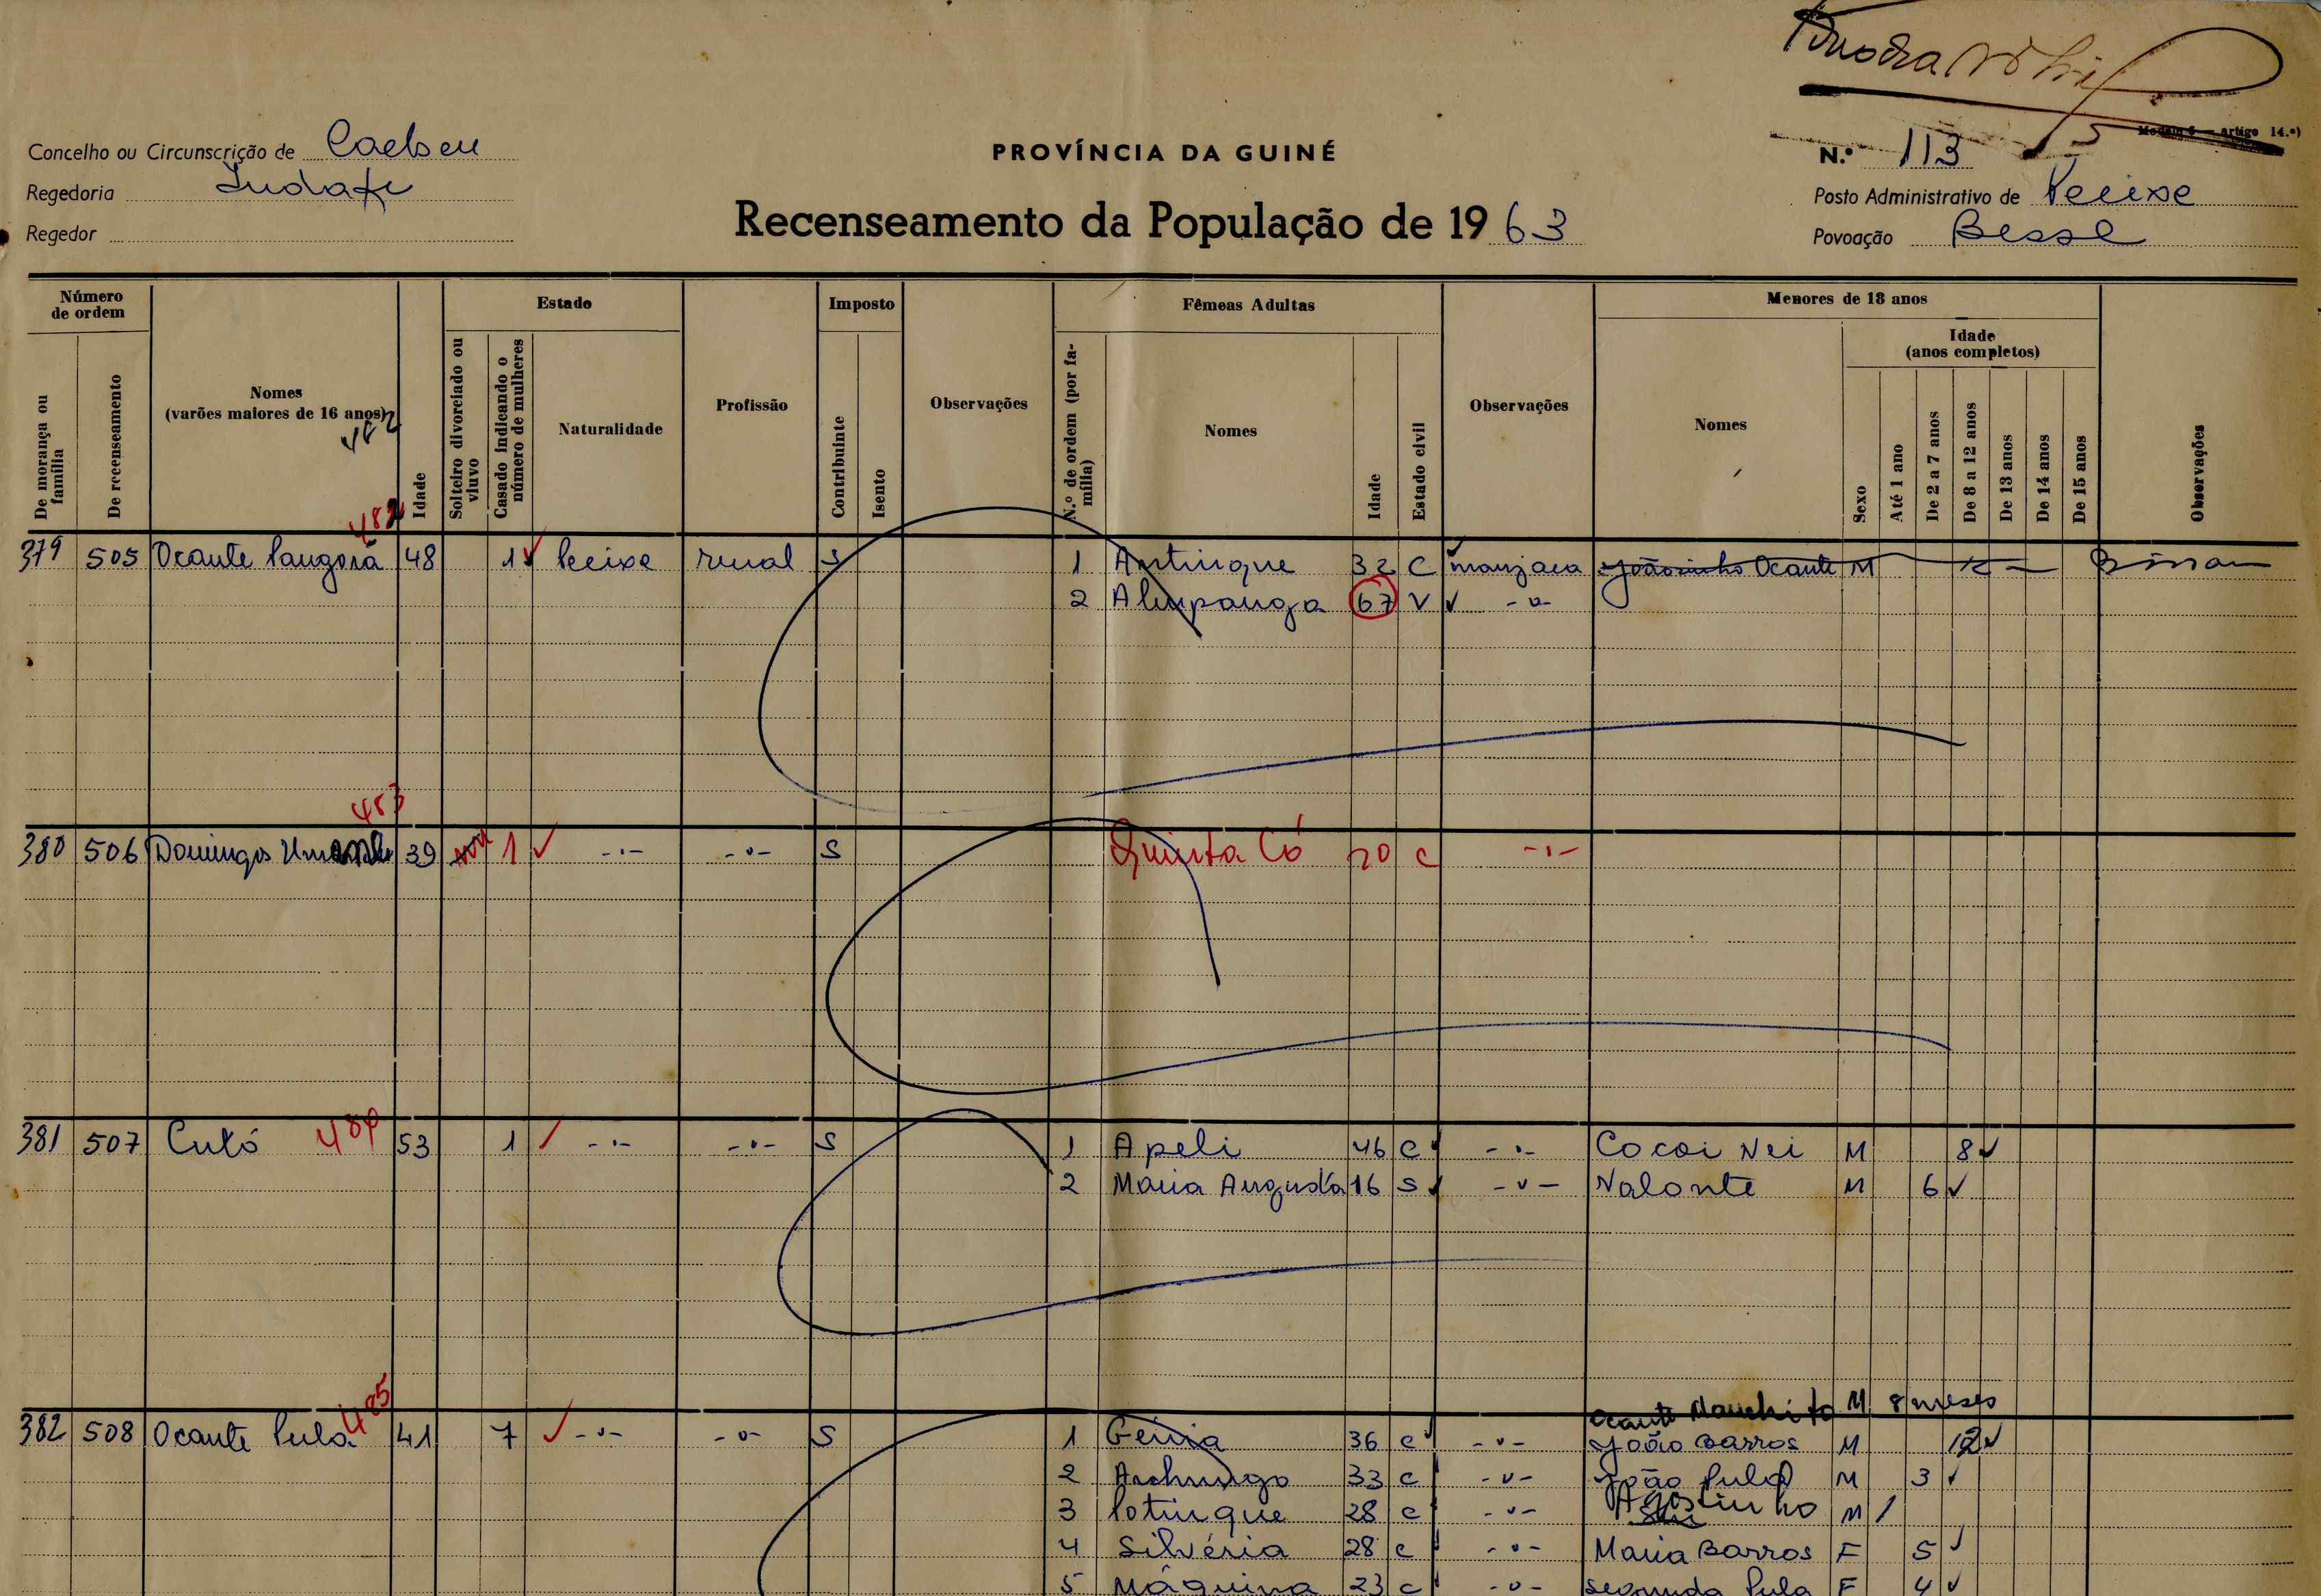 Modelo 5 — Artigo 14.º)
Concelho ou Circunscrição de
PROVÍNCIA DA GUINÉ
N.º 113
Regedoria
Posto Administrativo de
Regedor
Recenseamento da População de 1963
Povoação Besse
Número de ordem
De morança ou família
De recenseamento
Nomes
(varões maiores de 16 anos)
482
Idade
Estado
Solteiro divorciado ou viuvo
Casado indicando o número de mulheres
Naturalidade
Profissão
Imposto
Contribuinte
Isento
Observações
Fêmeas Adultas
N.º de ordem (por família)
Nomes
Idade
Estado civil
Observações
Menores de 18 anos
Nomes
Sexo
Idade
(anos completos)
Até 1 ano
De 2 a 7 anos
De 8 a 12 anos
De 13 anos
De 14 anos
De 15 anos
Observações
482
379 505 Ocante 48 1 rural S 1 Antinque 32 C manjaca Joãosinho Ocante M
2 67 V -"-
483
380 506 Domingos 39 1 -"- -"- S Quinta Có 20 C -"-
381 507 Culó 484 53 1 -"- -"- S 1 Apeli 46 C -"- Cocoi Nei M 8
2 Maria Augusta 16 S -"- Nalonte M 6
485
Ocante M 8 meses
382 508 Ocante Pula 41 7 -"- -"- S 1 36 C -"- João Barros M 12
2 33 C -"- João Pula M 3
3 Potinque 28 C -"- Agostinho M 1
4 Silvéria 28 C -"- Maria Barros F 5
5 Máquina 23 C -"- Segunda Pula F 4